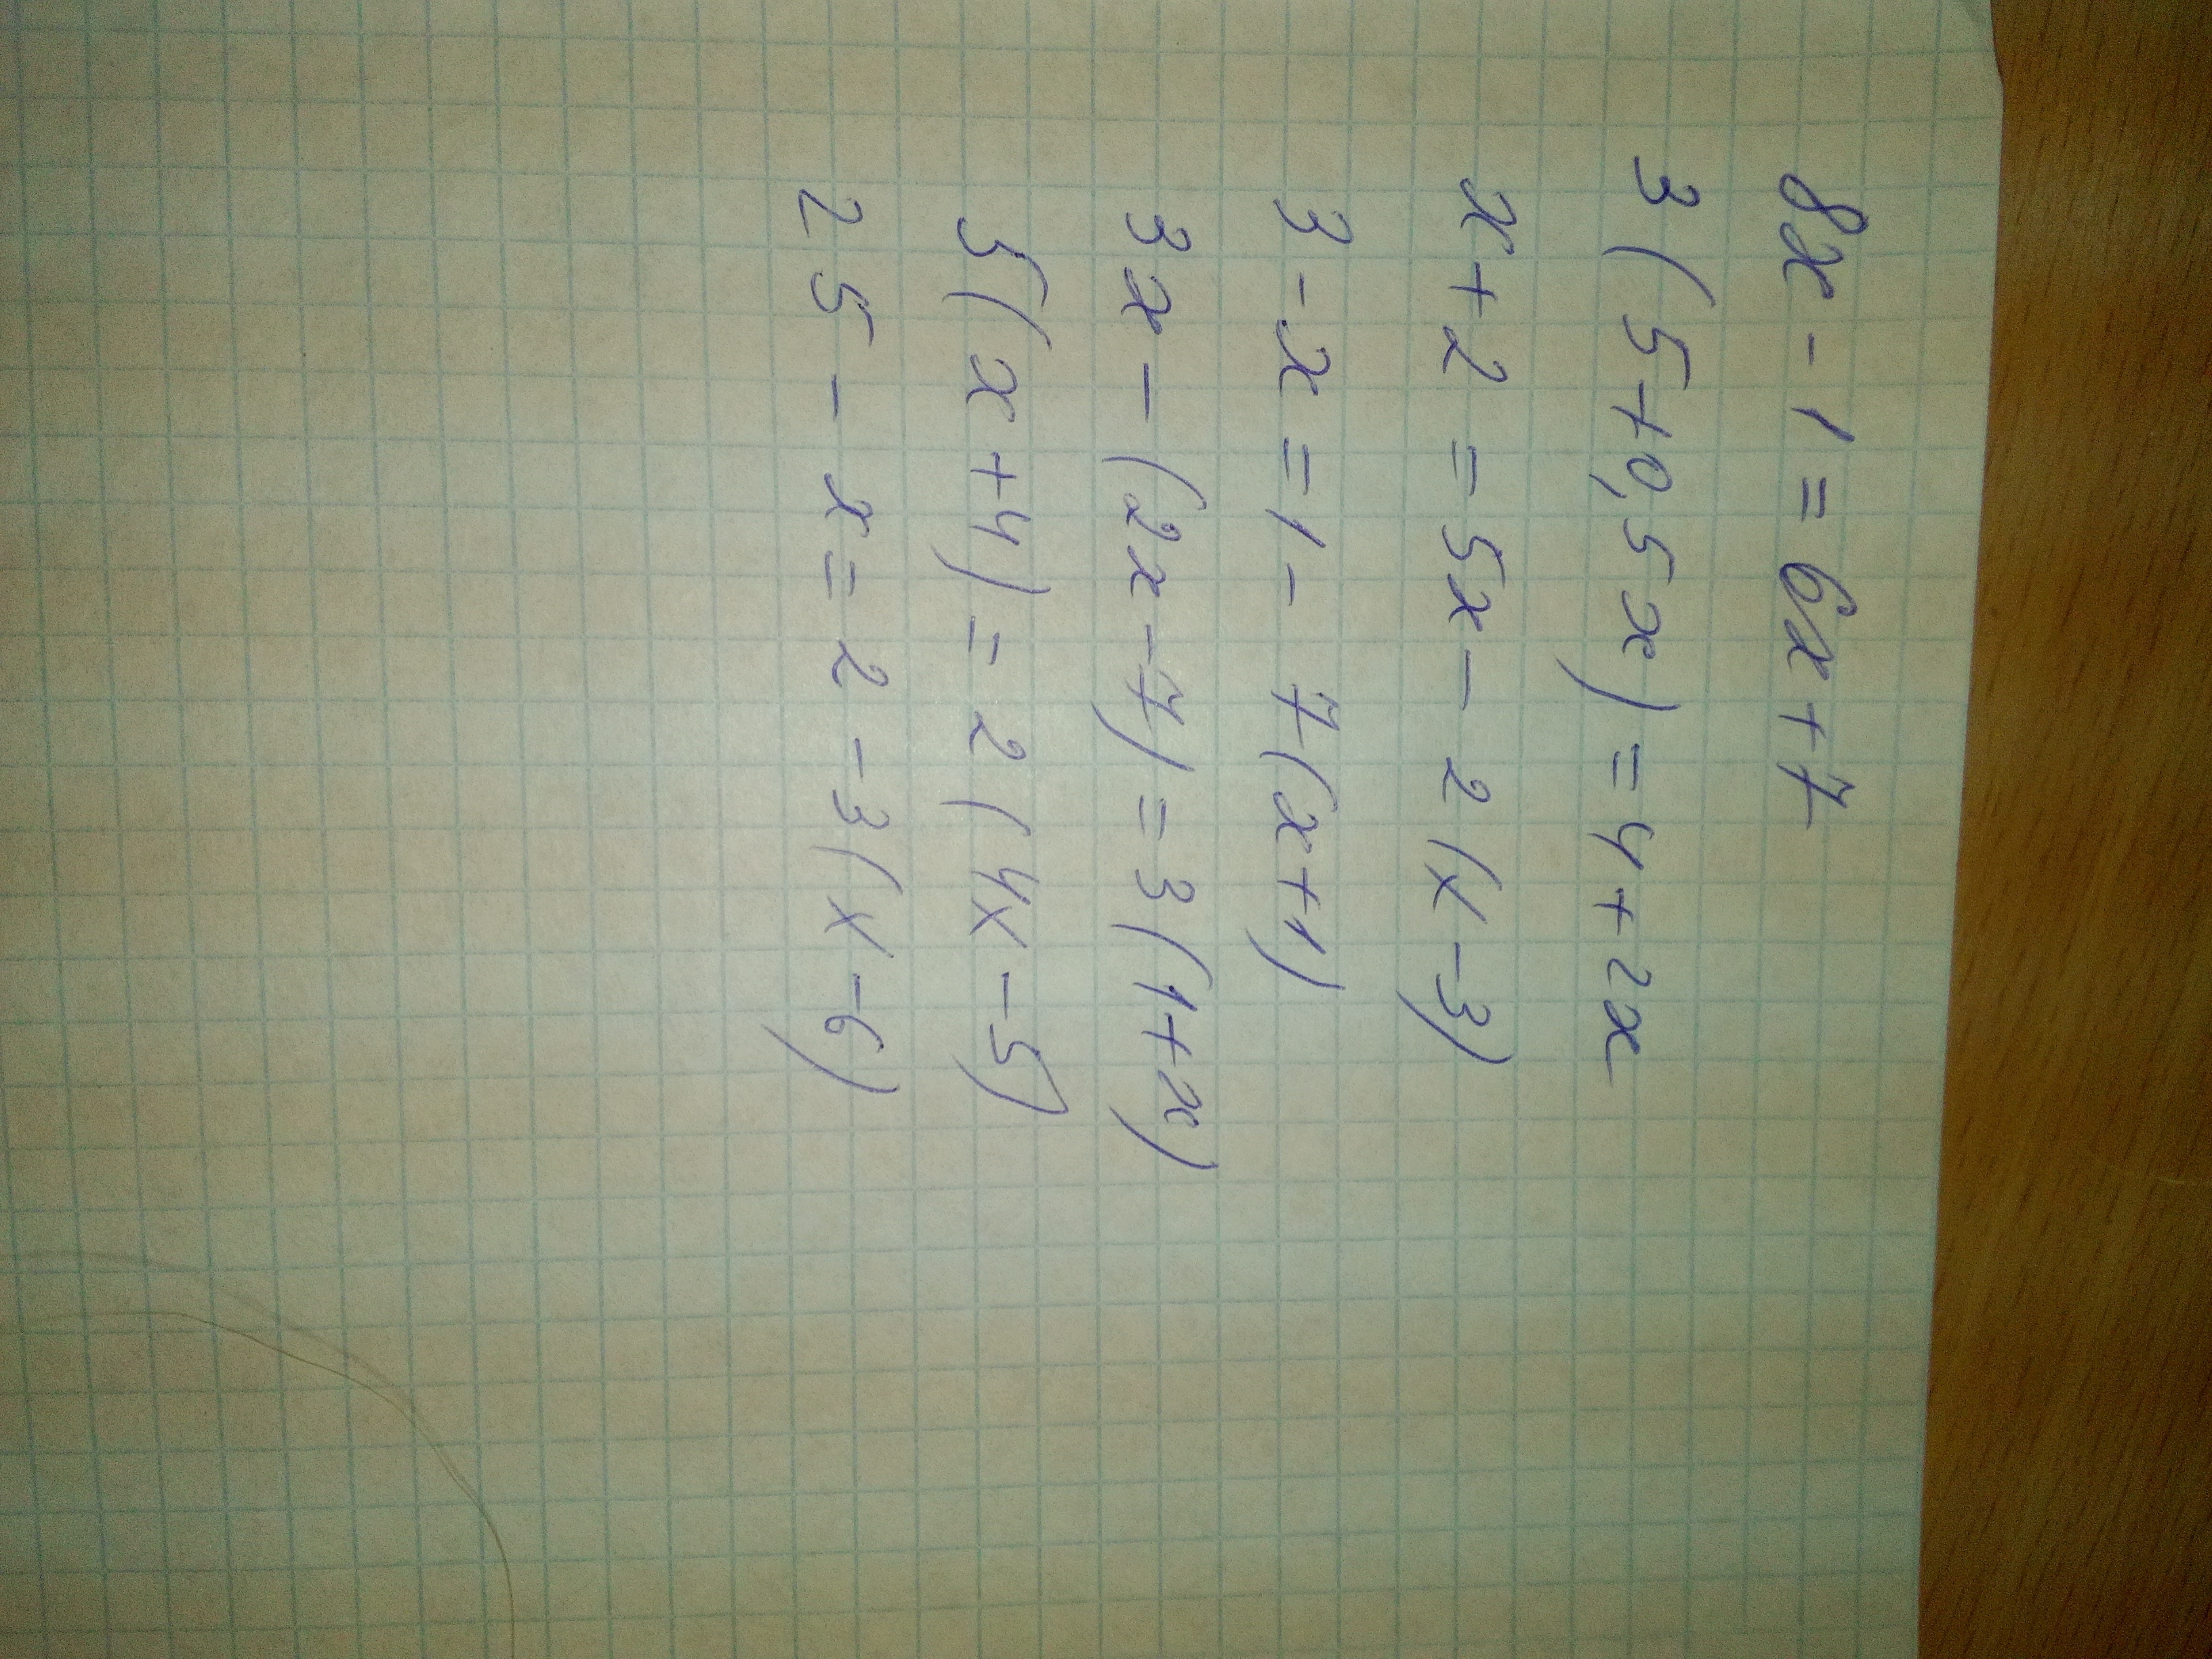 8x - 1 = 6x + 7
3(5+0,5x) = 4+2x
x+2 = 5x - 2(x-3)
3 - x = 1 - 7(x+1)
3x - (2x-7) = 3(1+x)
5(x+4) = 2(4x-5)
25 - x = 2 - 3(x-6)